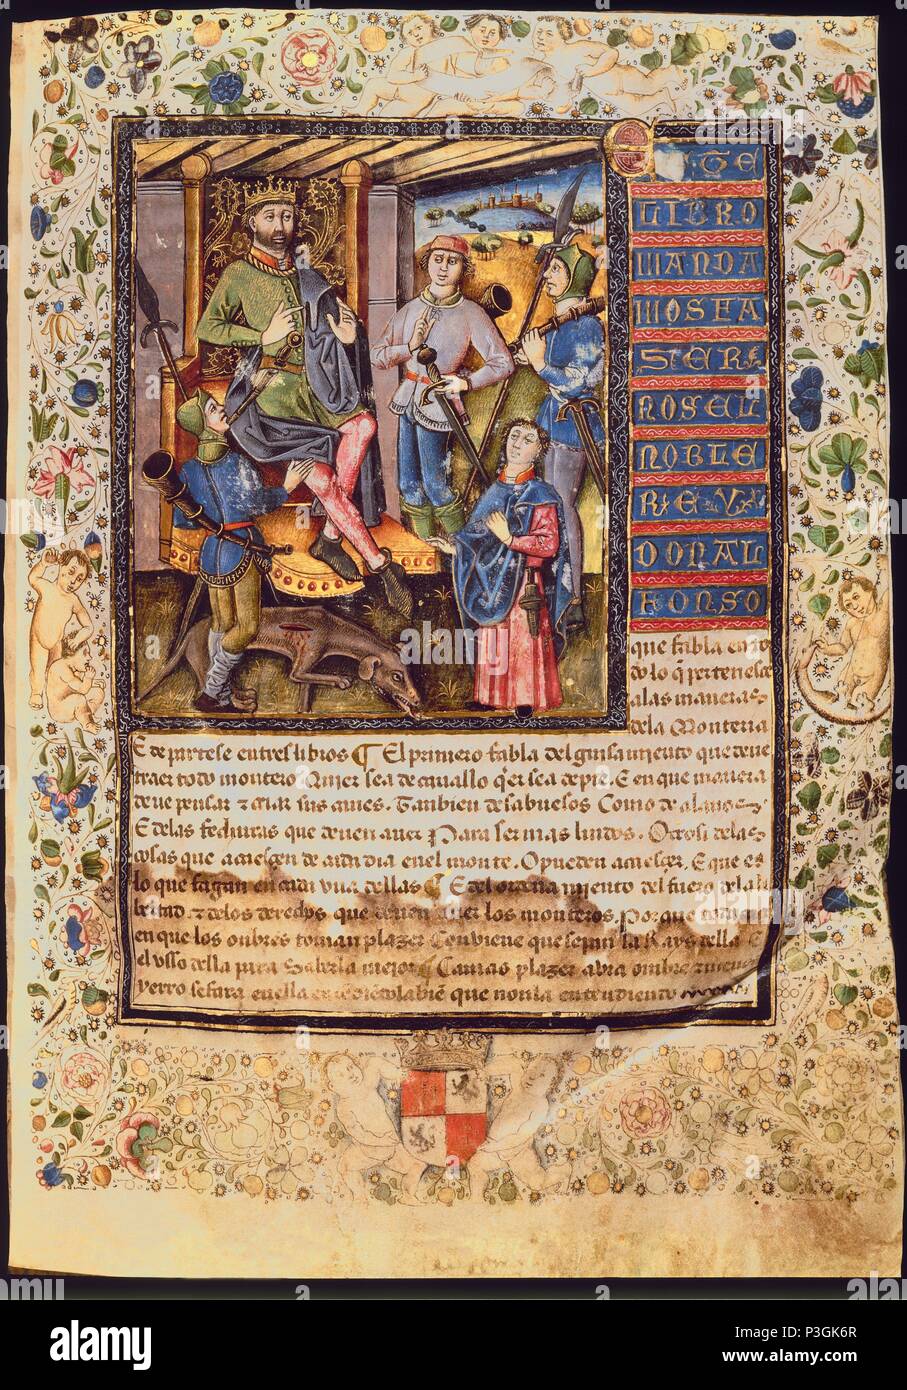 ESTE
LIBRO
MANDA
MOS FA
SER
NOS EL
NOBLE
REY
DON AL
FONSO
que fabla en to
do lo q̃ pertenesce
a las maneras
dela Monteria
E departese en tres libros ¶ El primero fabla del guisamiento que deue
traer todo montero Quier sea de cauallo q̃er sea de pie. E en que manera
deue pensar τ criar sus canes. Tanbien de sabuesos Como de alanos
E delas fechuras que deuen auer Para ser mas lindos. Otrosi delas
cosas que acaesçen de cada dia en el monte. O pueden acaesçer. E que es
lo que fagan en cada vna dellas ¶ E del ordenamiento del fuero dela li
bertad. τ delos derechos que deuen auer los monteros. Porque toda cosa
en que los onbres toman plazer Conuiene que sepan la Rays della E
el vsso della para Saberla mejor ¶ Ca mayor plazer abra onbre
yerro se fara en ella que non la entendiento
alamy
Image ID: P3GK6R
www.alamy.com